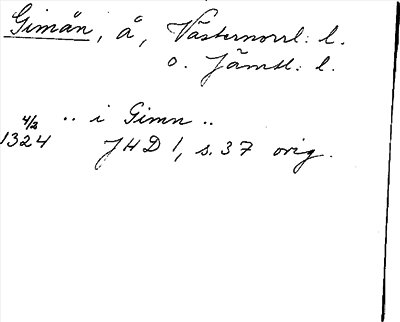 Gimån, å, Västernorrl. l.
o. Jämtl. l.
4/2 .. i Gimn ..
1324 JHD 1, s. 37 orig.